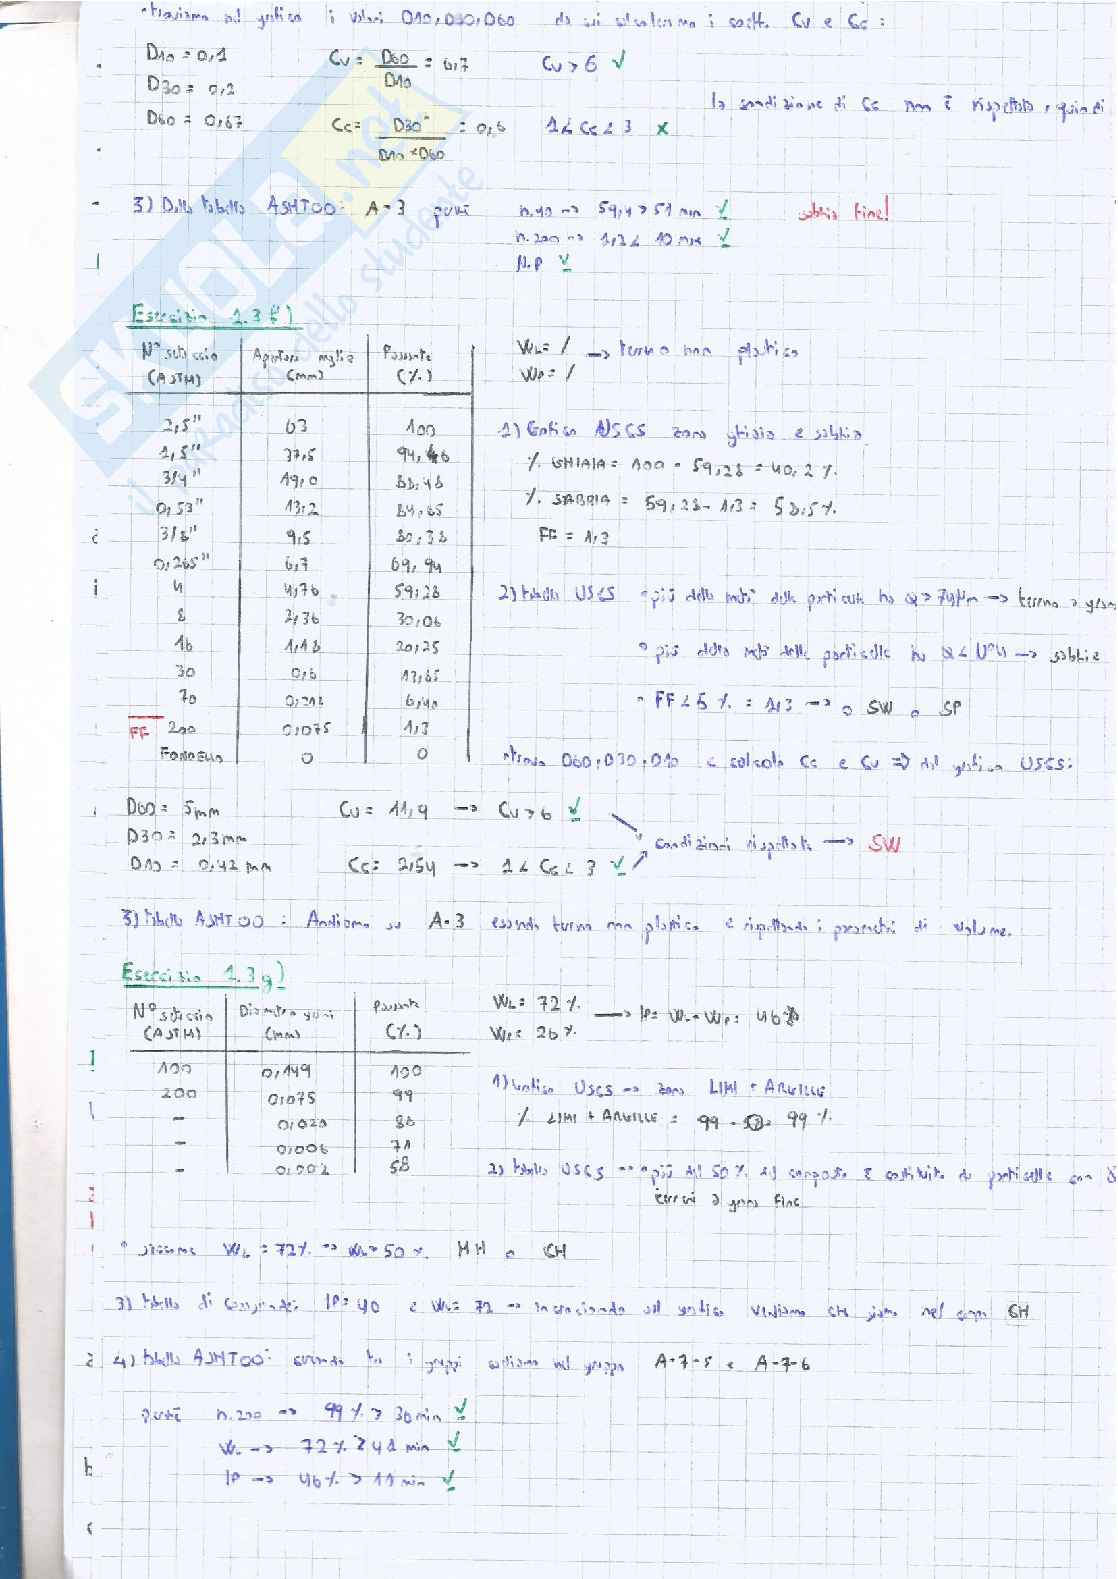 troviamo nel grafico i valori D10, D30, D60 da cui calcoleremo i coeff. Cu e Cc:
D10 = 0,1
Cu = D60 / D10 = 6,7
Cu > 6 ✓
D30 = 0,2
la condizione di Cc non è rispettata, quindi
D60 = 0,67
Cc = D30² / D10 × D60 = 0,6
1 < Cc < 3 ×
3) Dalla tabella ASHTOO: A-3 perché n.40 → 59,4 > 51 min ✓ sabbia fine!
n.200 → 1,3 < 10 max ✓
N.P ✓
Esercizio 1.3 f)
N° setaccio (ASTM) Apertura maglie (mm) Passante (%)
WL = / → terreno non plastico
WP = /
2,5" 63 100
1,5" 37,5 94,46
3/4" 19,0 88,48
0,53" 13,2 84,65
3/8" 9,5 80,38
0,265" 6,7 69,94
4 4,76 59,28
8 2,36 30,06
16 1,18 20,25
30 0,6 13,65
70 0,212 6,40
FF 200 0,075 1,3
FONDELLO 0 0
1) Grafico USCS zona ghiaia e sabbia
% GHIAIA = 100 - 59,28 = 40,2 %
% SABBIA = 59,28 - 1,3 = 58,5 %
FF = 1,3
2) tabella USCS • più della metà delle particelle ha Ø > 74 μm → terreno a
• più della metà delle particelle ha Ø < N°4 → sabbie
• FF < 5 % = 1,3 → o SW o SP
• trovo D60, D30, D10 e calcolo Cc e Cu ⇒ dal grafico USCS:
D60 = 5mm
Cu = 11,9 → Cu > 6 ✓
D30 = 2,3mm
condizioni rispettate → SW
D10 = 0,42 mm
Cc = 2,54 → 1 < Cc < 3 ✓
3) tabella ASHTOO: Andiamo su A-3 essendo terreno non plastico e rispettando i parametri di volume.
Esercizio 1.3 g)
N° setaccio (ASTM) Diametro grani (mm) Passante (%)
WL = 72 % → IP = WL - WP = 46 %
WP = 26 %
100 0,149 100
200 0,075 99
- 0,020 88
- 0,006 71
- 0,002 58
1) Grafico USCS → zona LIMI + ARGILLE
% LIMI + ARGILLE = 99 - 0 = 99 %
2) tabella USCS → • più del 50 % del campione è costituito da particelle con Ø
terreni a grana fine
• siccome WL = 72 % → WL > 50 % MH o CH
3) tabella di Casagrande: IP = 40 e WL = 72 → incrociando sul grafico vediamo che siamo nel campo CH
4) tabella ASHTOO: avendo tra i gruppi cadiamo nel gruppo A-7-5 e A-7-6
perché n.200 → 99 % > 36 min ✓
WL → 72 % ≥ 41 min ✓
IP → 46 % > 11 min ✓
SKUOLA.net
il paradiso dello studente